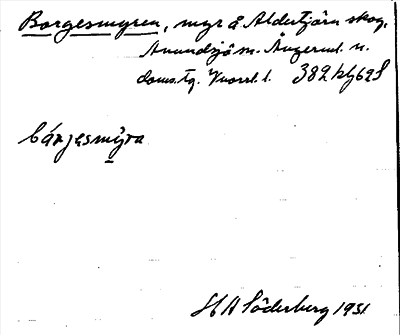 Borgesmyren, myr å Aldertjärn skog,
Anundsjö sn. Ångerml. n.
doms. tg. Vnorrl. l. 382
bárjesmýra
H A Söderberg 1931